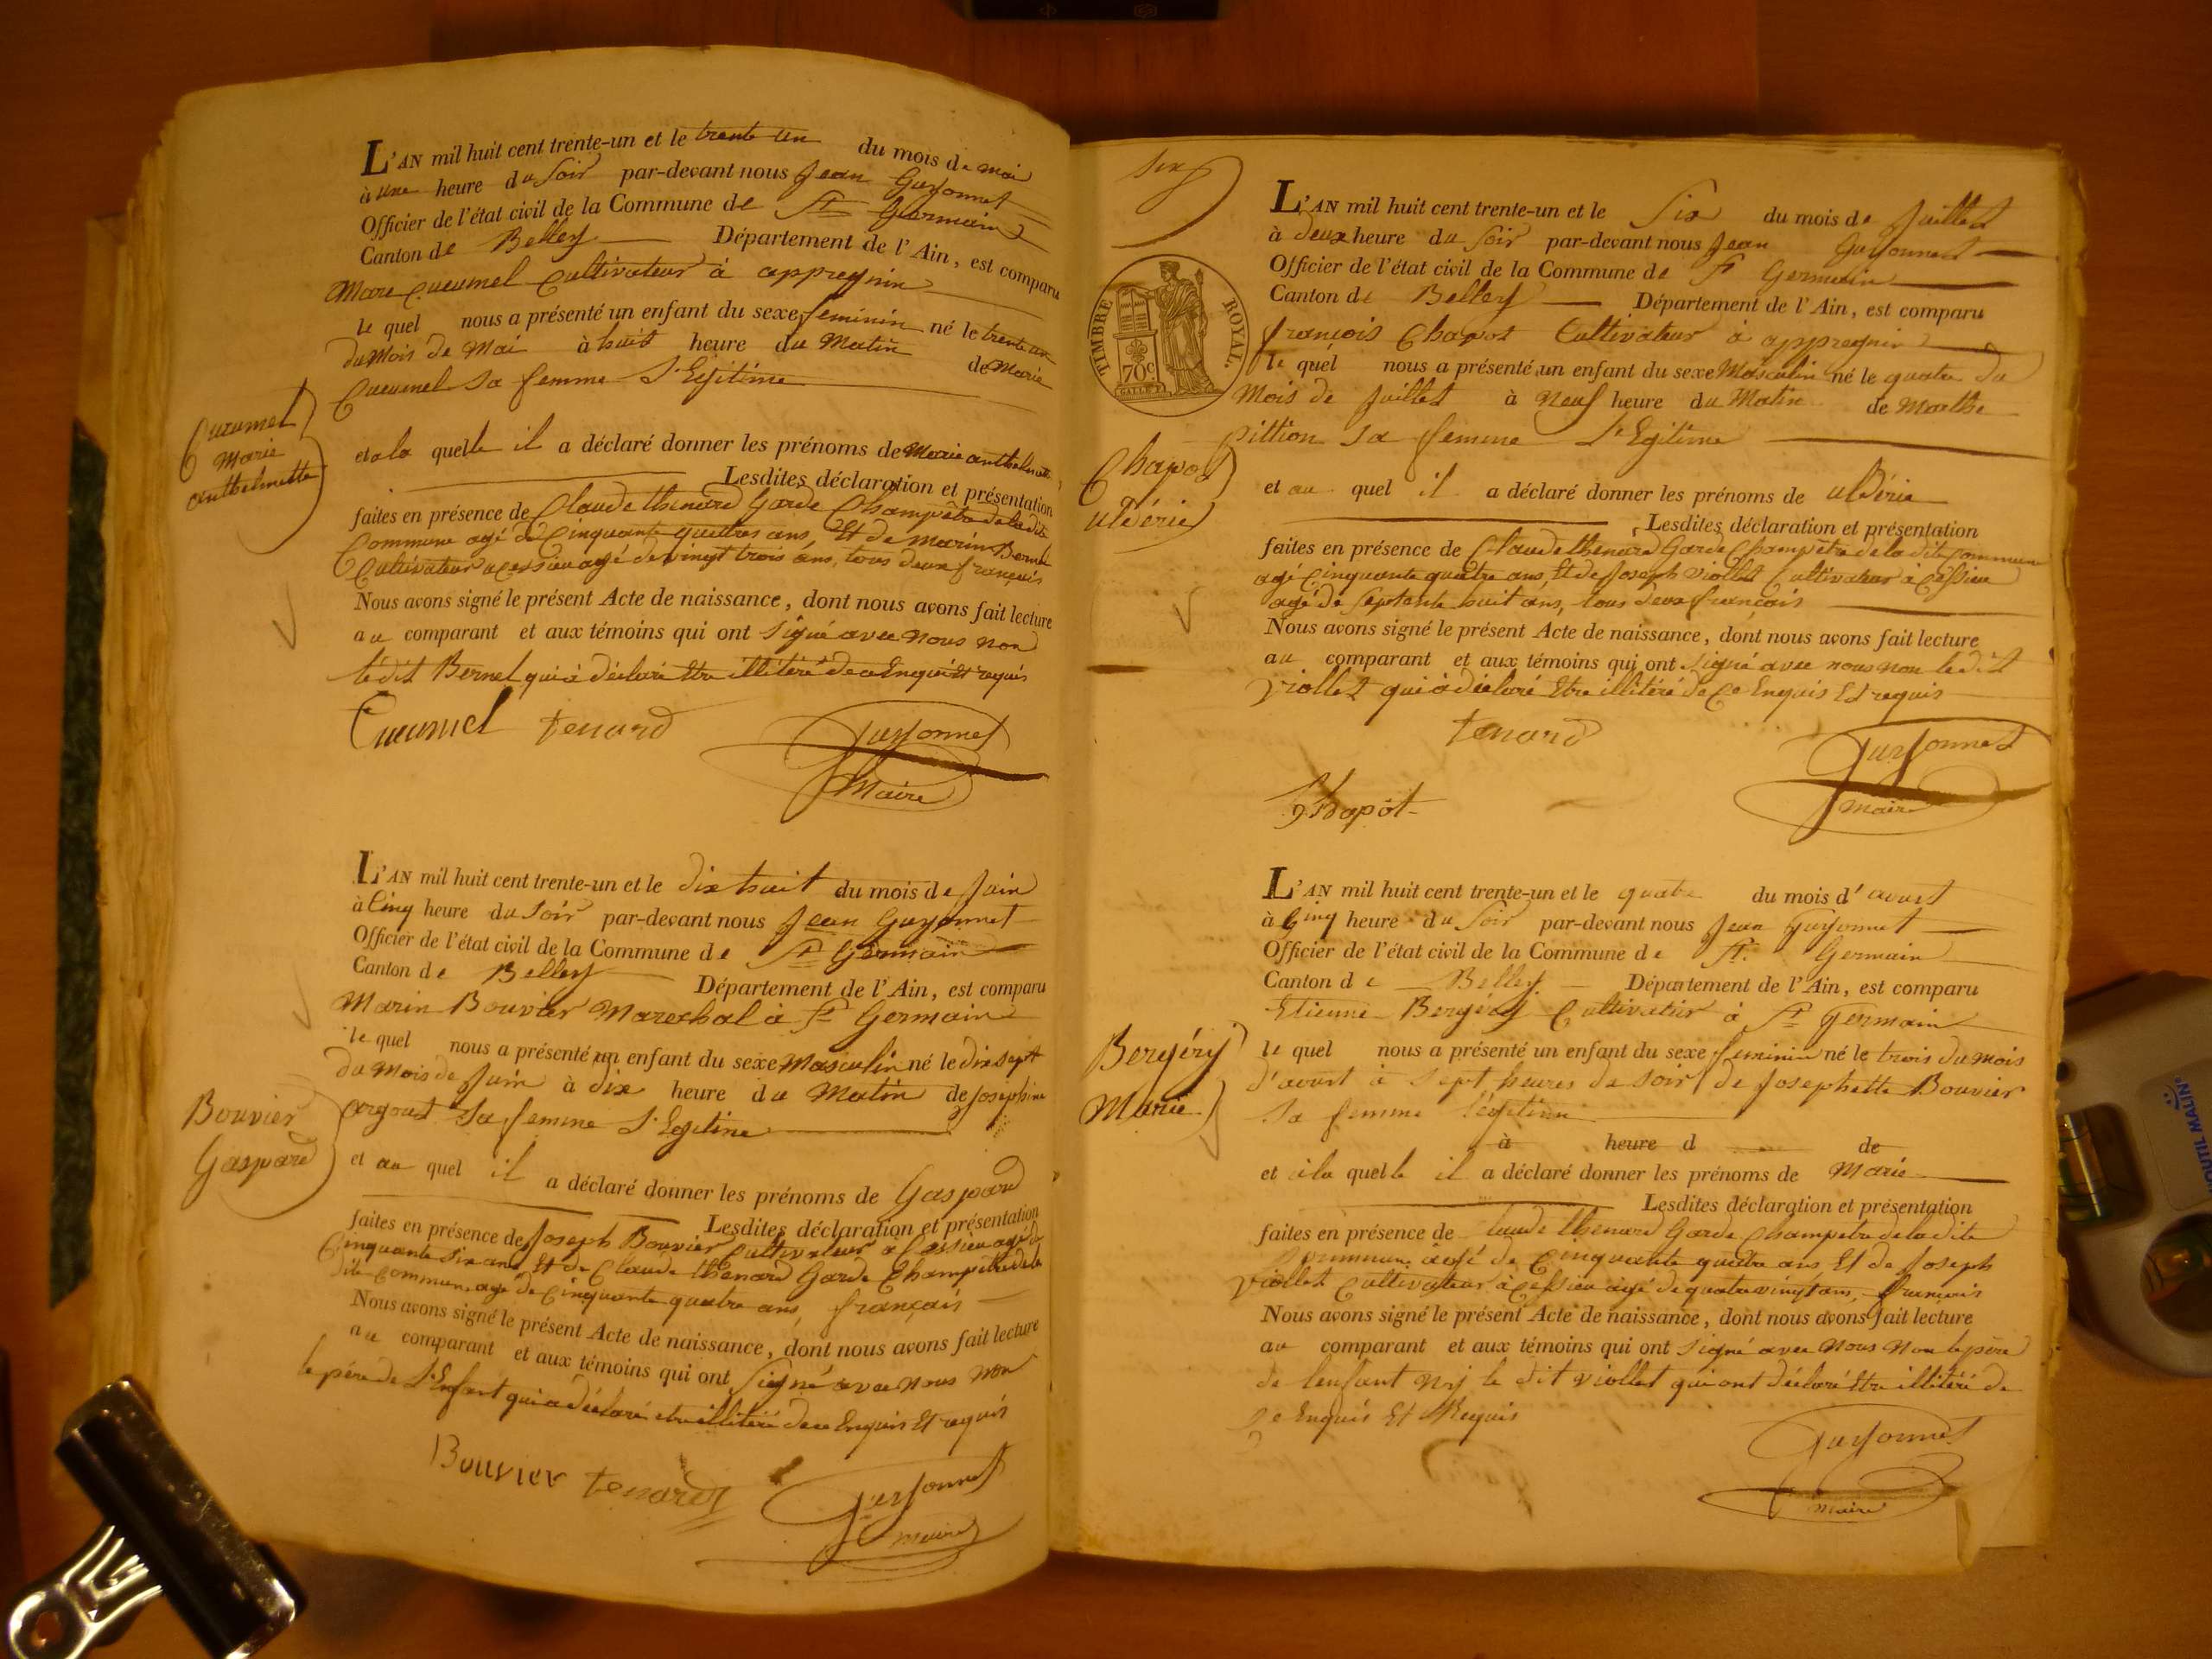 L'AN mil huit cent trente-un et le trente un du mois de mai
à une heure du Soir par-devant nous Jean Guyonnet
Officier de l'état civil de la Commune de St Germain
Canton de Belley Département de l'Ain, est comparu
Marc Cucumel Cultivateur à appregnin
le quel nous a présenté un enfant du sexe feminin né le trente un
du Mois de Mai à huit heure du Matin de Marie
Cucumel Sa femme L'Egitime
Cucumel
Marie
anthelmette
et a la quelle il a déclaré donner les prénoms de Marie anthelmette
Lesdites déclaration et présentation
faites en présence de Claude thenard Garde Champêtre de la dite
Commune agé de Cinquante quattres ans, Et de marin Bernel
Cultivateur a cessieu agé de vingt trois ans, tous deux français
Nous avons signé le présent Acte de naissance, dont nous avons fait lecture
au comparant et aux témoins qui ont Signé avec nous non
le dit Bernel qui à déclaré Etre illitéré de ce Enquis Et requis
Cucumel tenard Guyonnet
Maire
L'AN mil huit cent trente-un et le dix huit du mois de Juin
à Cinq heure du Soir par-devant nous Jean Guyonnet
Officier de l'état civil de la Commune de St Germain
Canton de Belley Département de l'Ain, est comparu
Marin Bouvier Marechal à St Germain
le quel nous a présenté un enfant du sexe Masculin né le dix sept
du Mois de Juin à dix heure du Matin de Josephine
argout Sa femme L'Egitime
Bouvier
Gaspard
et au quel il a déclaré donner les prénoms de Gaspard
Lesdites déclaration et présentation
faites en présence de Joseph Bouvier Cultivateur a Cessieu agé de
Cinquante Six ans Et de Claude thenard Garde Champêtre de la
dite Commune, agé de Cinquante quatre ans, français
Nous avons signé le présent Acte de naissance, dont nous avons fait lecture
au comparant et aux témoins qui ont Signé avec nous non
le père de L'Enfant qui a déclaré etre illitéré de ce Enquis Et requis
Bouvier tenard Guyonnet
maire
six
L'AN mil huit cent trente-un et le Six du mois de Juillet
à deux heure du Soir par-devant nous Jean Guyonnet
Officier de l'état civil de la Commune de St Germain
Canton de Belley Département de l'Ain, est comparu
TIMBRE ROYAL.
70c
françois Chapot Cultivateur à appregnin
le quel nous a présenté un enfant du sexe Masculin né le quatre du
Mois de Juillet à Neuf heure du Matin de Marthe
pittion Sa femme L'Egitime
Chapot
uldérie
et au quel il a déclaré donner les prénoms de uldérie
Lesdites déclaration et présentation
faites en présence de Claude thenard Garde Champêtre de la dite Commune
agé Cinquante quatre ans, Et de Joseph viollet Cultivateur à Cessieu
agé de Septante huit ans, tous deux français
Nous avons signé le présent Acte de naissance, dont nous avons fait lecture
au comparant et aux témoins qui ont Signé avec nous non le dit
viollet qui à déclaré Etre illitéré de Ce Enquis Et requis
tenard Guyonnet
maire
Chapot
L'AN mil huit cent trente-un et le quatre du mois d'aoust
à Cinq heure du Soir par-devant nous Jean Guyonnet
Officier de l'état civil de la Commune de St. Germain
Canton de Belley Département de l'Ain, est comparu
Etienne Bergéry Cultivateur à St Germain
Bergéry
Marie
le quel nous a présenté un enfant du sexe feminin né le trois du mois
d'aoust à Sept heures du Soir de Josephette Bouvier
Sa femme légitime
à heure d de
et à la quelle il a déclaré donner les prénoms de Marie
Lesdites déclaration et présentation
faites en présence de Claude thenard Garde Champetre de la dite
Commune agé de Cinquante quatre ans Et de Joseph
viollet Cultivateur à Cessieu agé de quatre vingt ans, francais
Nous avons signé le présent Acte de naissance, dont nous avons fait lecture
au comparant et aux témoins qui ont Signé avec Nous Non le père
de lenfant Ny le dit viollet qui ont déclaré Etre illitéré de
Ce Enquis Et Requis
Guyonnet
maire
OUTIL MALIN